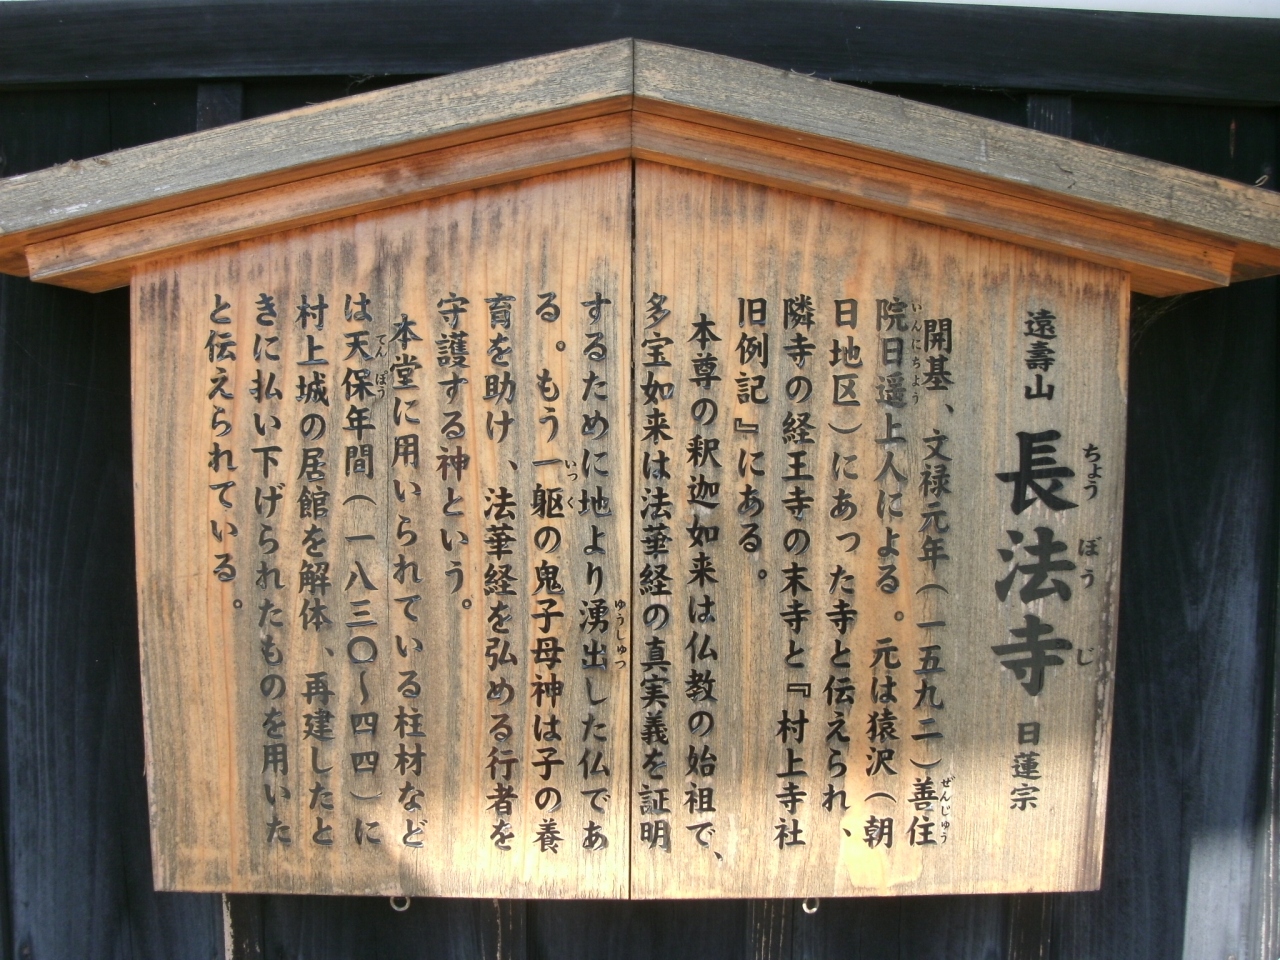 遠壽山 長法寺 日蓮宗
ちょう ぼう じ
開基、文禄元年(一五九二)善住
ぜんじゅう
院日遥上人による。元は猿沢(朝
いんにちよう
日地区)にあった寺と伝えられ、
隣寺の経王寺の末寺と『村上寺社
旧例記』にある。
本尊の釈迦如来は仏教の始祖で、
多宝如来は法華経の真実義を証明
するために地より湧出した仏であ
ゆうしゅつ
る。もう一躯の鬼子母神は子の養
いっく
育を助け、法華経を弘める行者を
守護する神という。
本堂に用いられている柱材など
は天保年間(一八三〇~四四)に
てんぽう
村上城の居館を解体、再建したと
きに払い下げられたものを用いた
と伝えられている。